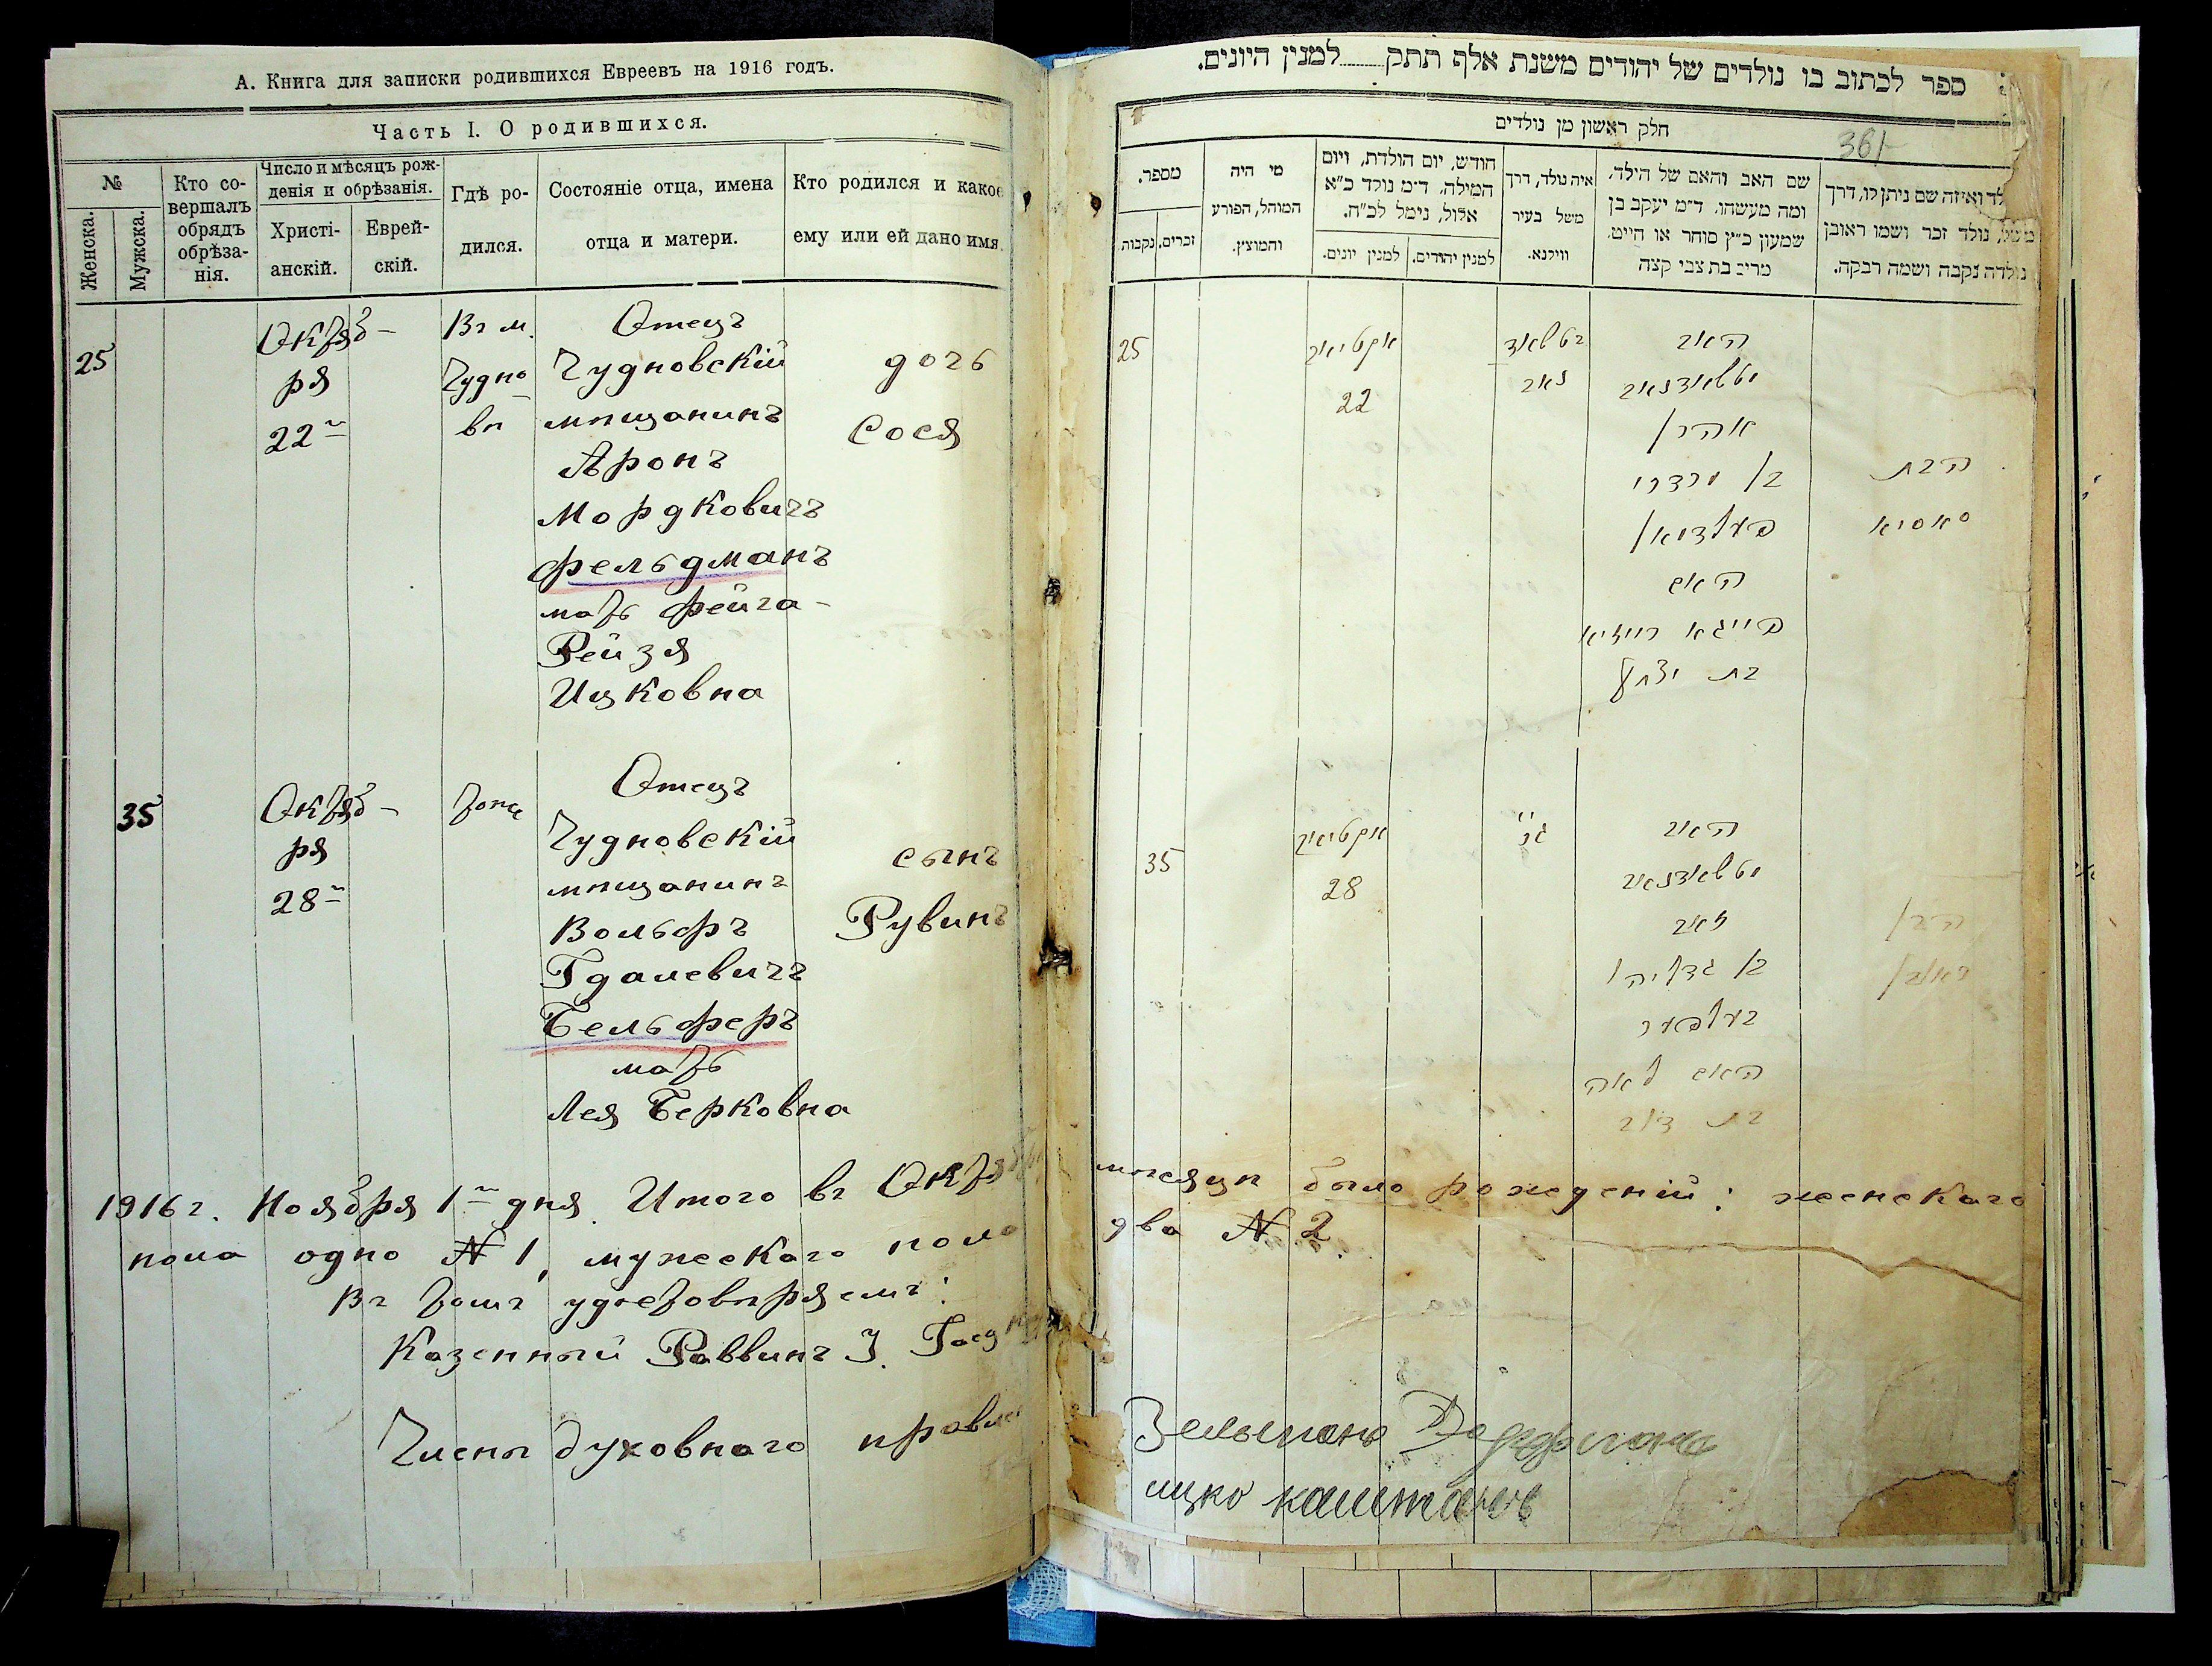 А. Книга для записки родившихся Евреевъ на 1916 годъ.
Часть I. О родившихся.
№
Женска.
Мужска.
Кто со-
вершалъ
обрядъ
обрѣза-
нія.
Число и мѣсяцъ рож-
денія и обрѣзанія.
Христі-
анскій.
Еврей-
скій.
Гдѣ ро-
дился.
Состояніе отца, имена
отца и матери.
Кто родился и какое
ему или ей дано имя.
25
Октяб-
ря
22
Въ м.
Чудно-
вѣ
Отецъ
Чудновскій
мѣщанинъ
Аронъ
Мордковичъ
Фельдманъ
мать Фейга-
Рейзя
Ицковна
дочь
Сося
35
Октяб-
ря
28
тоже
Отецъ
Чудновскій
мѣщанинъ
Вольфъ
Гдалевичъ
Бельферъ
мать
Лея Берковна
сынъ
Рувинъ
1916 г. Ноября 1 дня. Итого въ Октяб
пола одно № 1, мужескаго пола
Въ томъ удостовѣряемъ:
Казенный Раввинъ
Члены духовнаго правле
ספר לכתוב בו נולדים של יהודים משנת אלף תתק למנין היונים.
חלק ראשון מן נולדים
361
מספר.
זכרים.
נקבות
מי היה
המוהל, הפורע
והמוצץ.
חודש, יום הולדת, ויום
המילה, ד״מ נולד כ״א
אלול, נימל לכ״ח.
למנין יהודים.
למנין יונים.
איה נולד, דרך
משל בעיר
ווילנא.
שם האב והאם של הילד,
ומה מעשהו. ד״מ יעקב בן
שמעון כ״ץ סוחר או חייט.
מרים בת צבי קצה
לד ואיזה שם ניתן לו, דרך
משל, נולד זכר ושמו ראובן
נולדה נקבה ושמה רבקה.
25
22
האב
אהרן
בן מרדכי
פעלדמאן
האם
פייגא רייזיא
בת יצחק
הבת
סאסיא
35
28
האב
זאב
בן גדליהו
בעלפער
האם לאה
בת דוב
הבן
ראובן
мѣсяцѣ было рожденій: женскаго
два № 2.
Зельманъ
ицко каштанъ